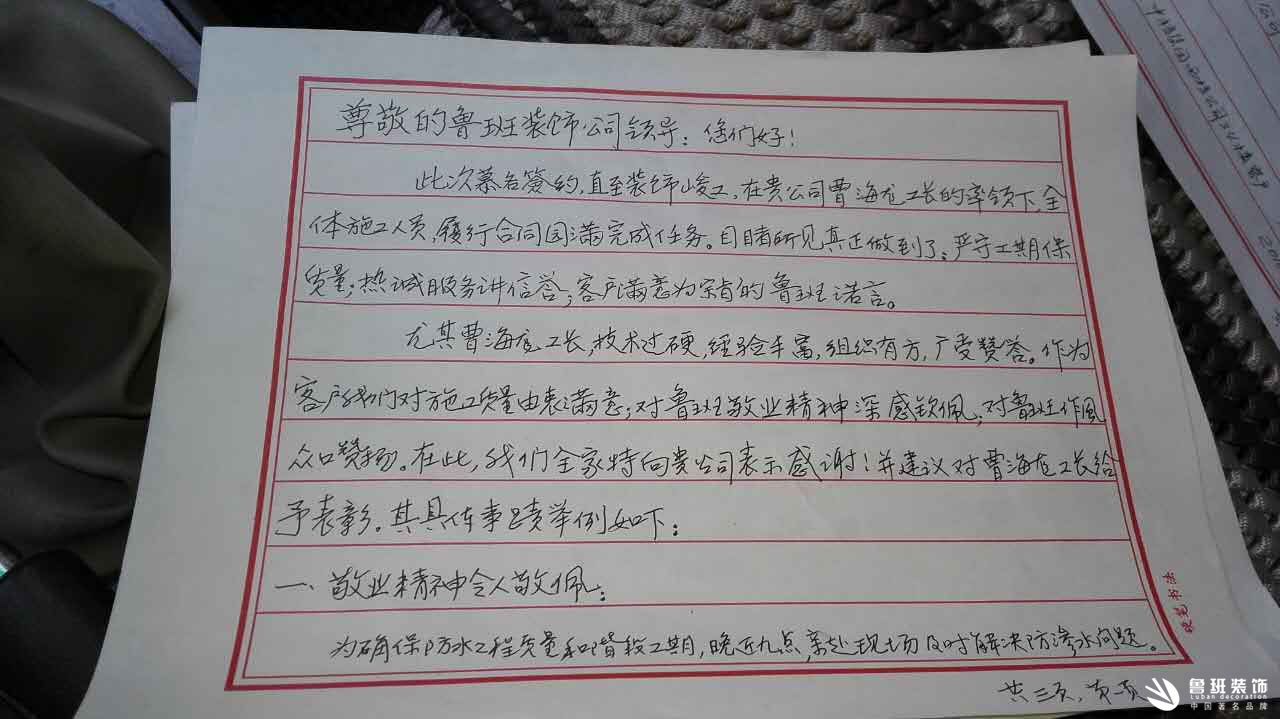 尊敬的鲁班装饰公司领导:您们好!
此次慕名签约,直至装饰峻工,在贵公司曹海龙工长的率领下,全
体施工人员,履行合同圆满完成任务。目睹所见真正做到了:严守工期保
质量;热诚服务讲信誉;客户满意为宗旨的鲁班诺言。
尤其曹海龙工长,技术过硬,经验丰富,组织有方,广受赞答。作为
客户我们对施工质量由表满意;对鲁班敬业精神深感钦佩,对鲁班作风
众口赞扬。在此,我们全家特向贵公司表示感谢!并建议对曹海龙工长给
予表彰。其具体事迹举例如下:
一、敬业精神令人敬佩:
为确保防水工程质量和阶段工期,晚近九点,亲赴现场及时解决防渗水问题。
共三页,
书法
鲁班装饰
Luban decoration
中国著名品牌